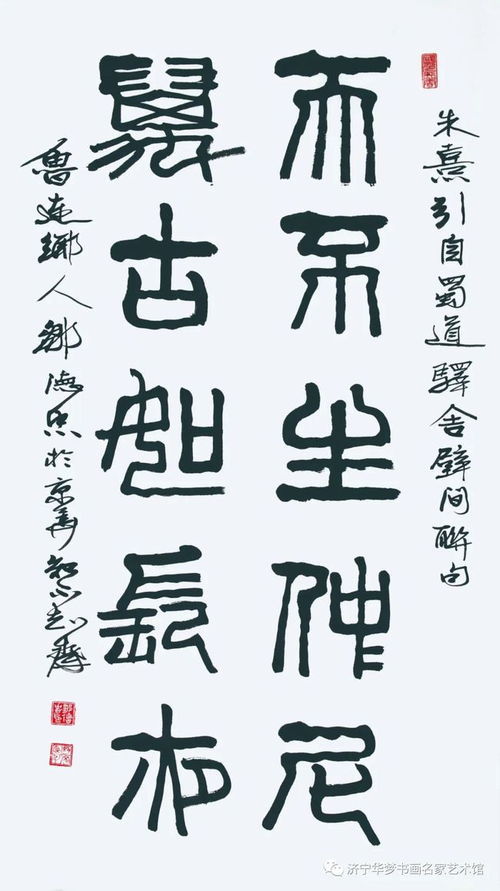 朱熹引自蜀道驛舍壁间聯句
天不生仲尼
萬古如長夜
魯連鄉人鄒德忠於京華
济宁华梦书画名家艺术馆